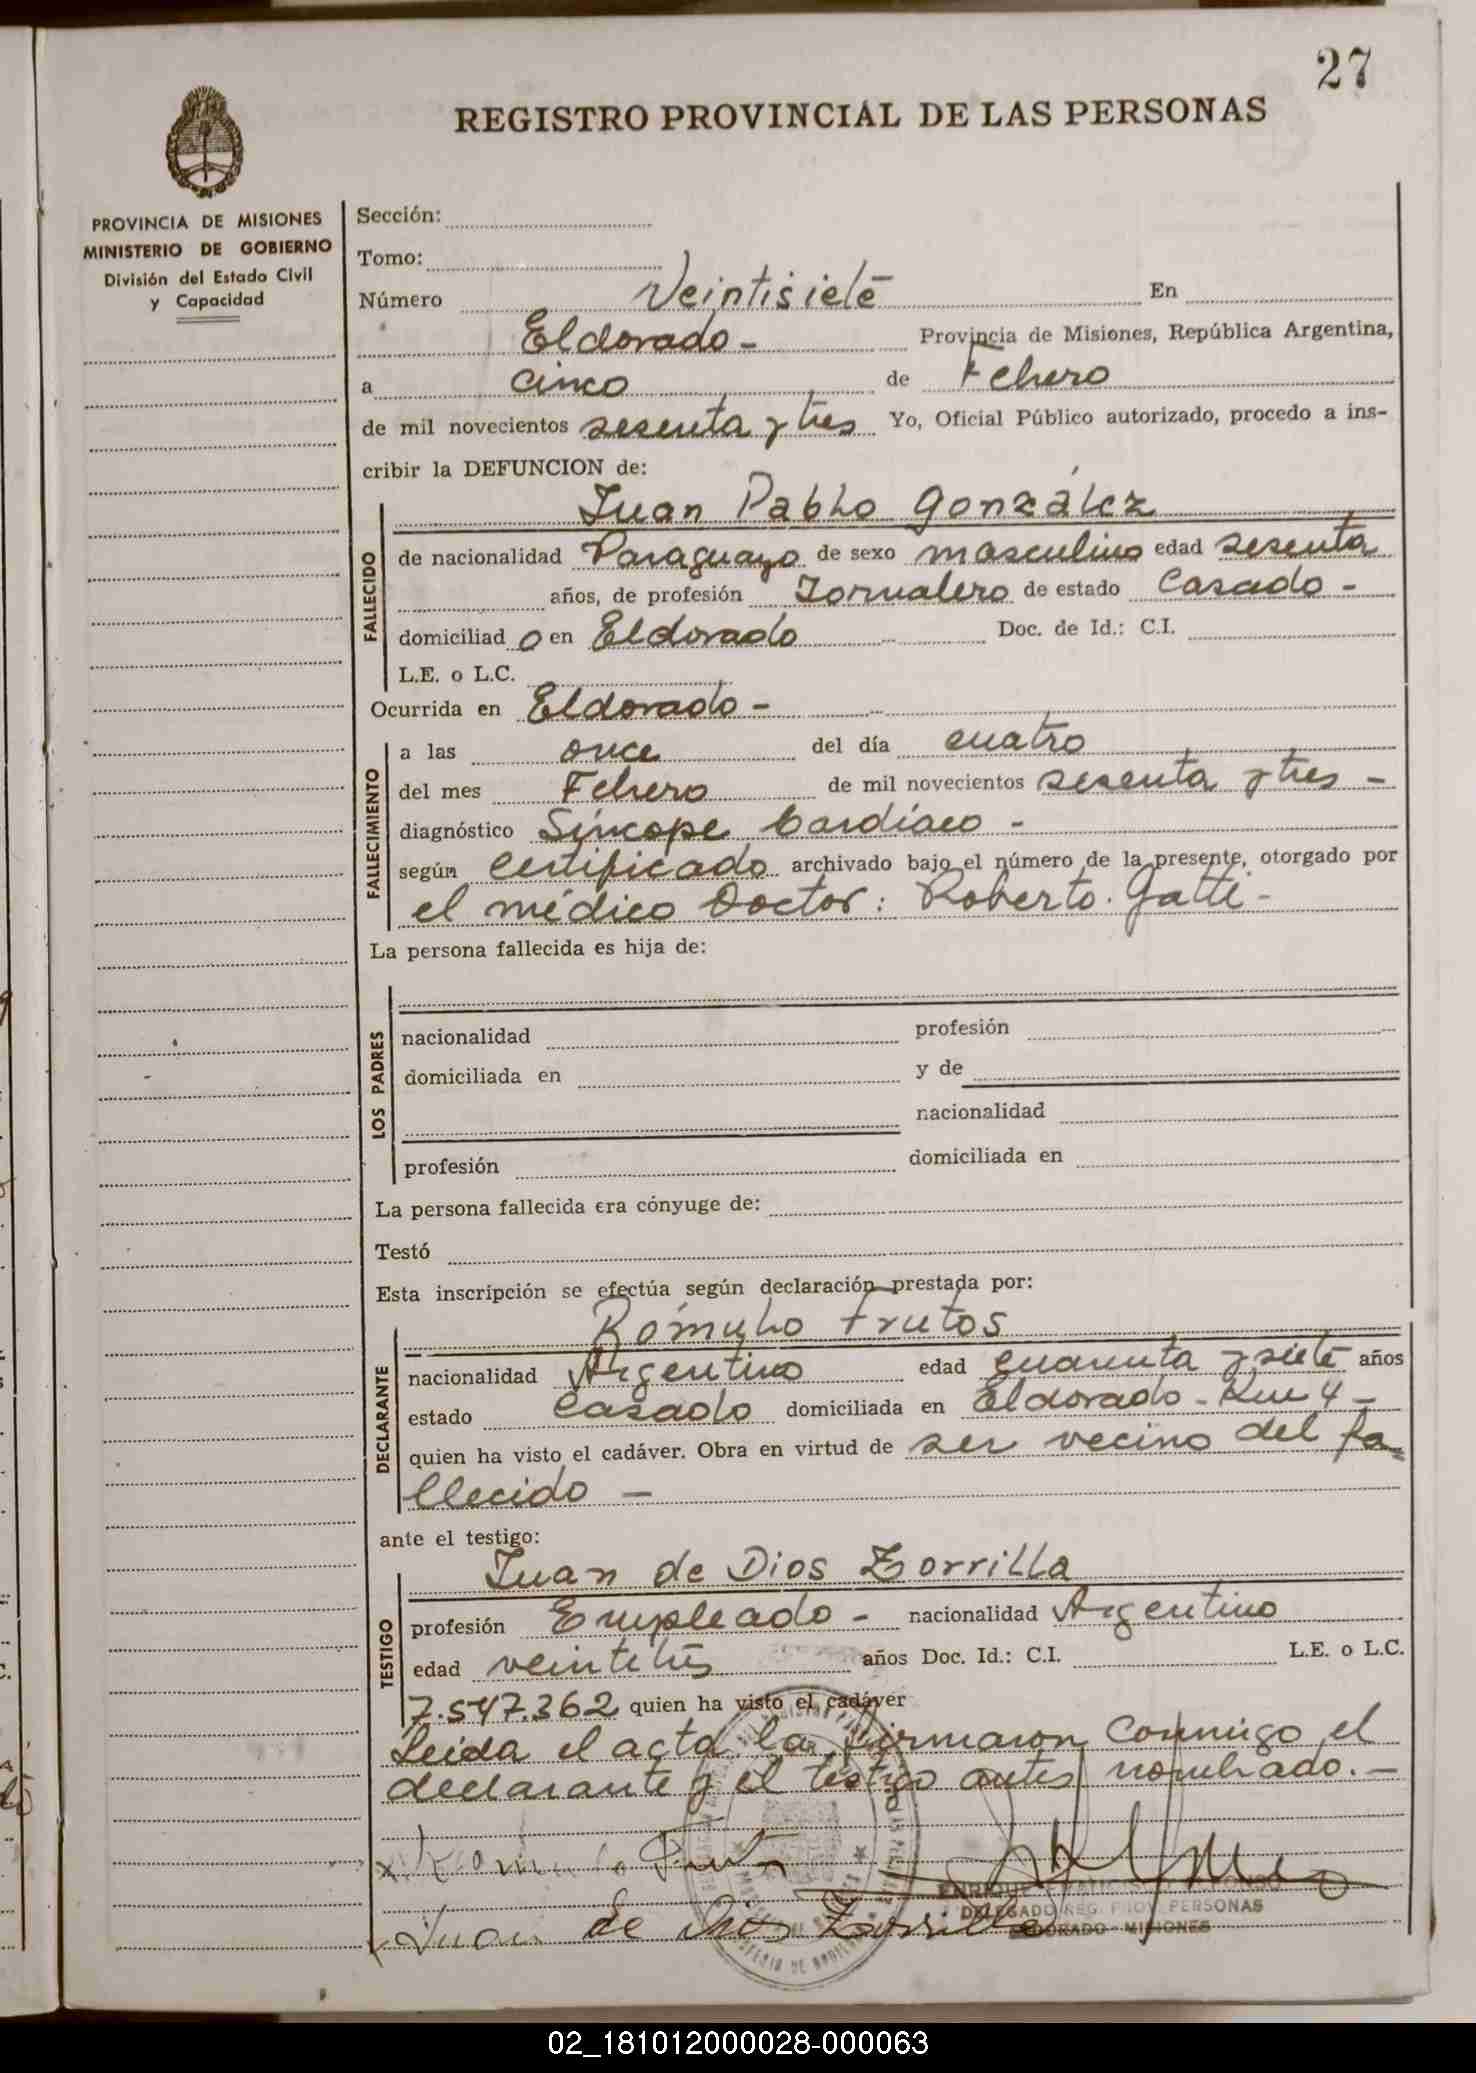 27
REGISTRO PROVINCIAL DE LAS PERSONAS
PROVINCIA DE MISIONES
MINISTERIO DE GOBIERNO
División del Estado Civil
y Capacidad
Sección:
Tomo:
Número Veintisiete En
Eldorado - Provincia de Misiones, República Argentina,
a cinco de Febrero
de mil novecientos sesenta y tres Yo, Oficial Público autorizado, procedo a ins-
cribir la DEFUNCION de:
FALLECIDO
Juan Pablo González
de nacionalidad Paraguayo de sexo masculino edad sesenta
años, de profesión Jornalero de estado Casado -
domiciliado en Eldorado Doc. de Id.: C.I.
L.E. o L.C.
Ocurrida en Eldorado -
FALLECIMIENTO
a las once del día cuatro
del mes Febrero de mil novecientos sesenta y tres -
diagnóstico Síncope Cardíaco -
según Certificado archivado bajo el número de la presente, otorgado por
el médico Doctor: Roberto. Gatti -
La persona fallecida es hija de:
LOS PADRES
nacionalidad profesión
domiciliada en y de
nacionalidad
profesión domiciliada en
La persona fallecida era cónyuge de:
Testó
Esta inscripción se efectúa según declaración prestada por:
DECLARANTE
Rómulo Frutos
nacionalidad Argentino edad cuarenta y siete años
estado Casado domiciliada en Eldorado - Km 4 -
quien ha visto el cadáver. Obra en virtud de ser vecino del fa-
llecido -
ante el testigo:
TESTIGO
Juan de Dios Zorrilla
profesión Empleado - nacionalidad Argentino
edad veintitrés años Doc. Id.: C.I. L.E. o L.C.
7.547.362 quien ha visto el cadáver
Leída el acta la firmaron Conmigo el
declarante y el testigo antes nombrado. -
x Romulo Frutos
ENRIQUE
DELEGADO REG. PROV. PERSONAS
ELDORADO - MISIONES
Juan de Dios Zorrilla
02_181012000028-000063